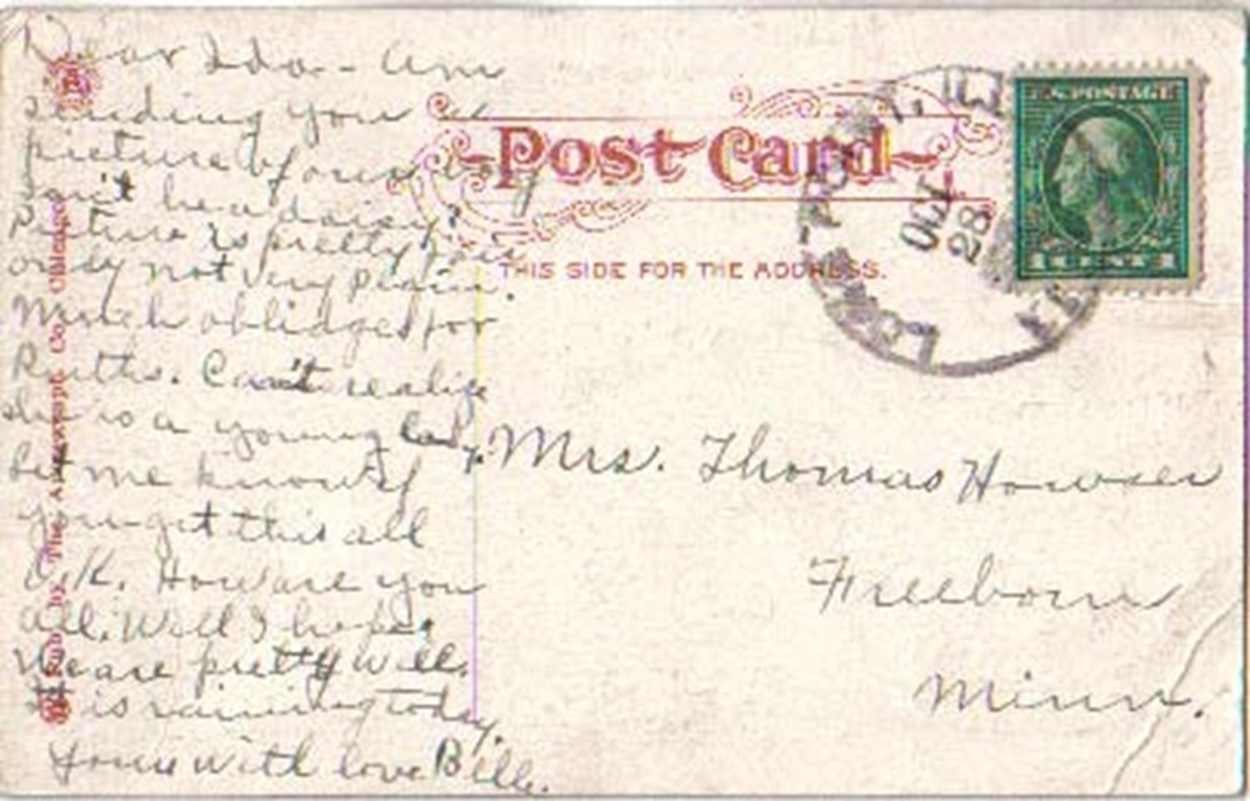 Dear Ida - Am
sending you a
picture of our boy
Isn't he a daisy?
Picture is pretty
only not very plain.
Much oblidged for
Ruth's. Can't realize
she is a young lady.
Let me know if
you get this all
O.K. How are you
all. Well I hope.
We are pretty well.
It is raining today.
Yours with love Belle.
Post Card
THIS SIDE FOR THE ADDRESS.
U.S. POSTAGE
1 CENT 1
OCT
28
Mrs. Thomas Howser
Freeborn
Minn.
Pub. by The Co. Chicago